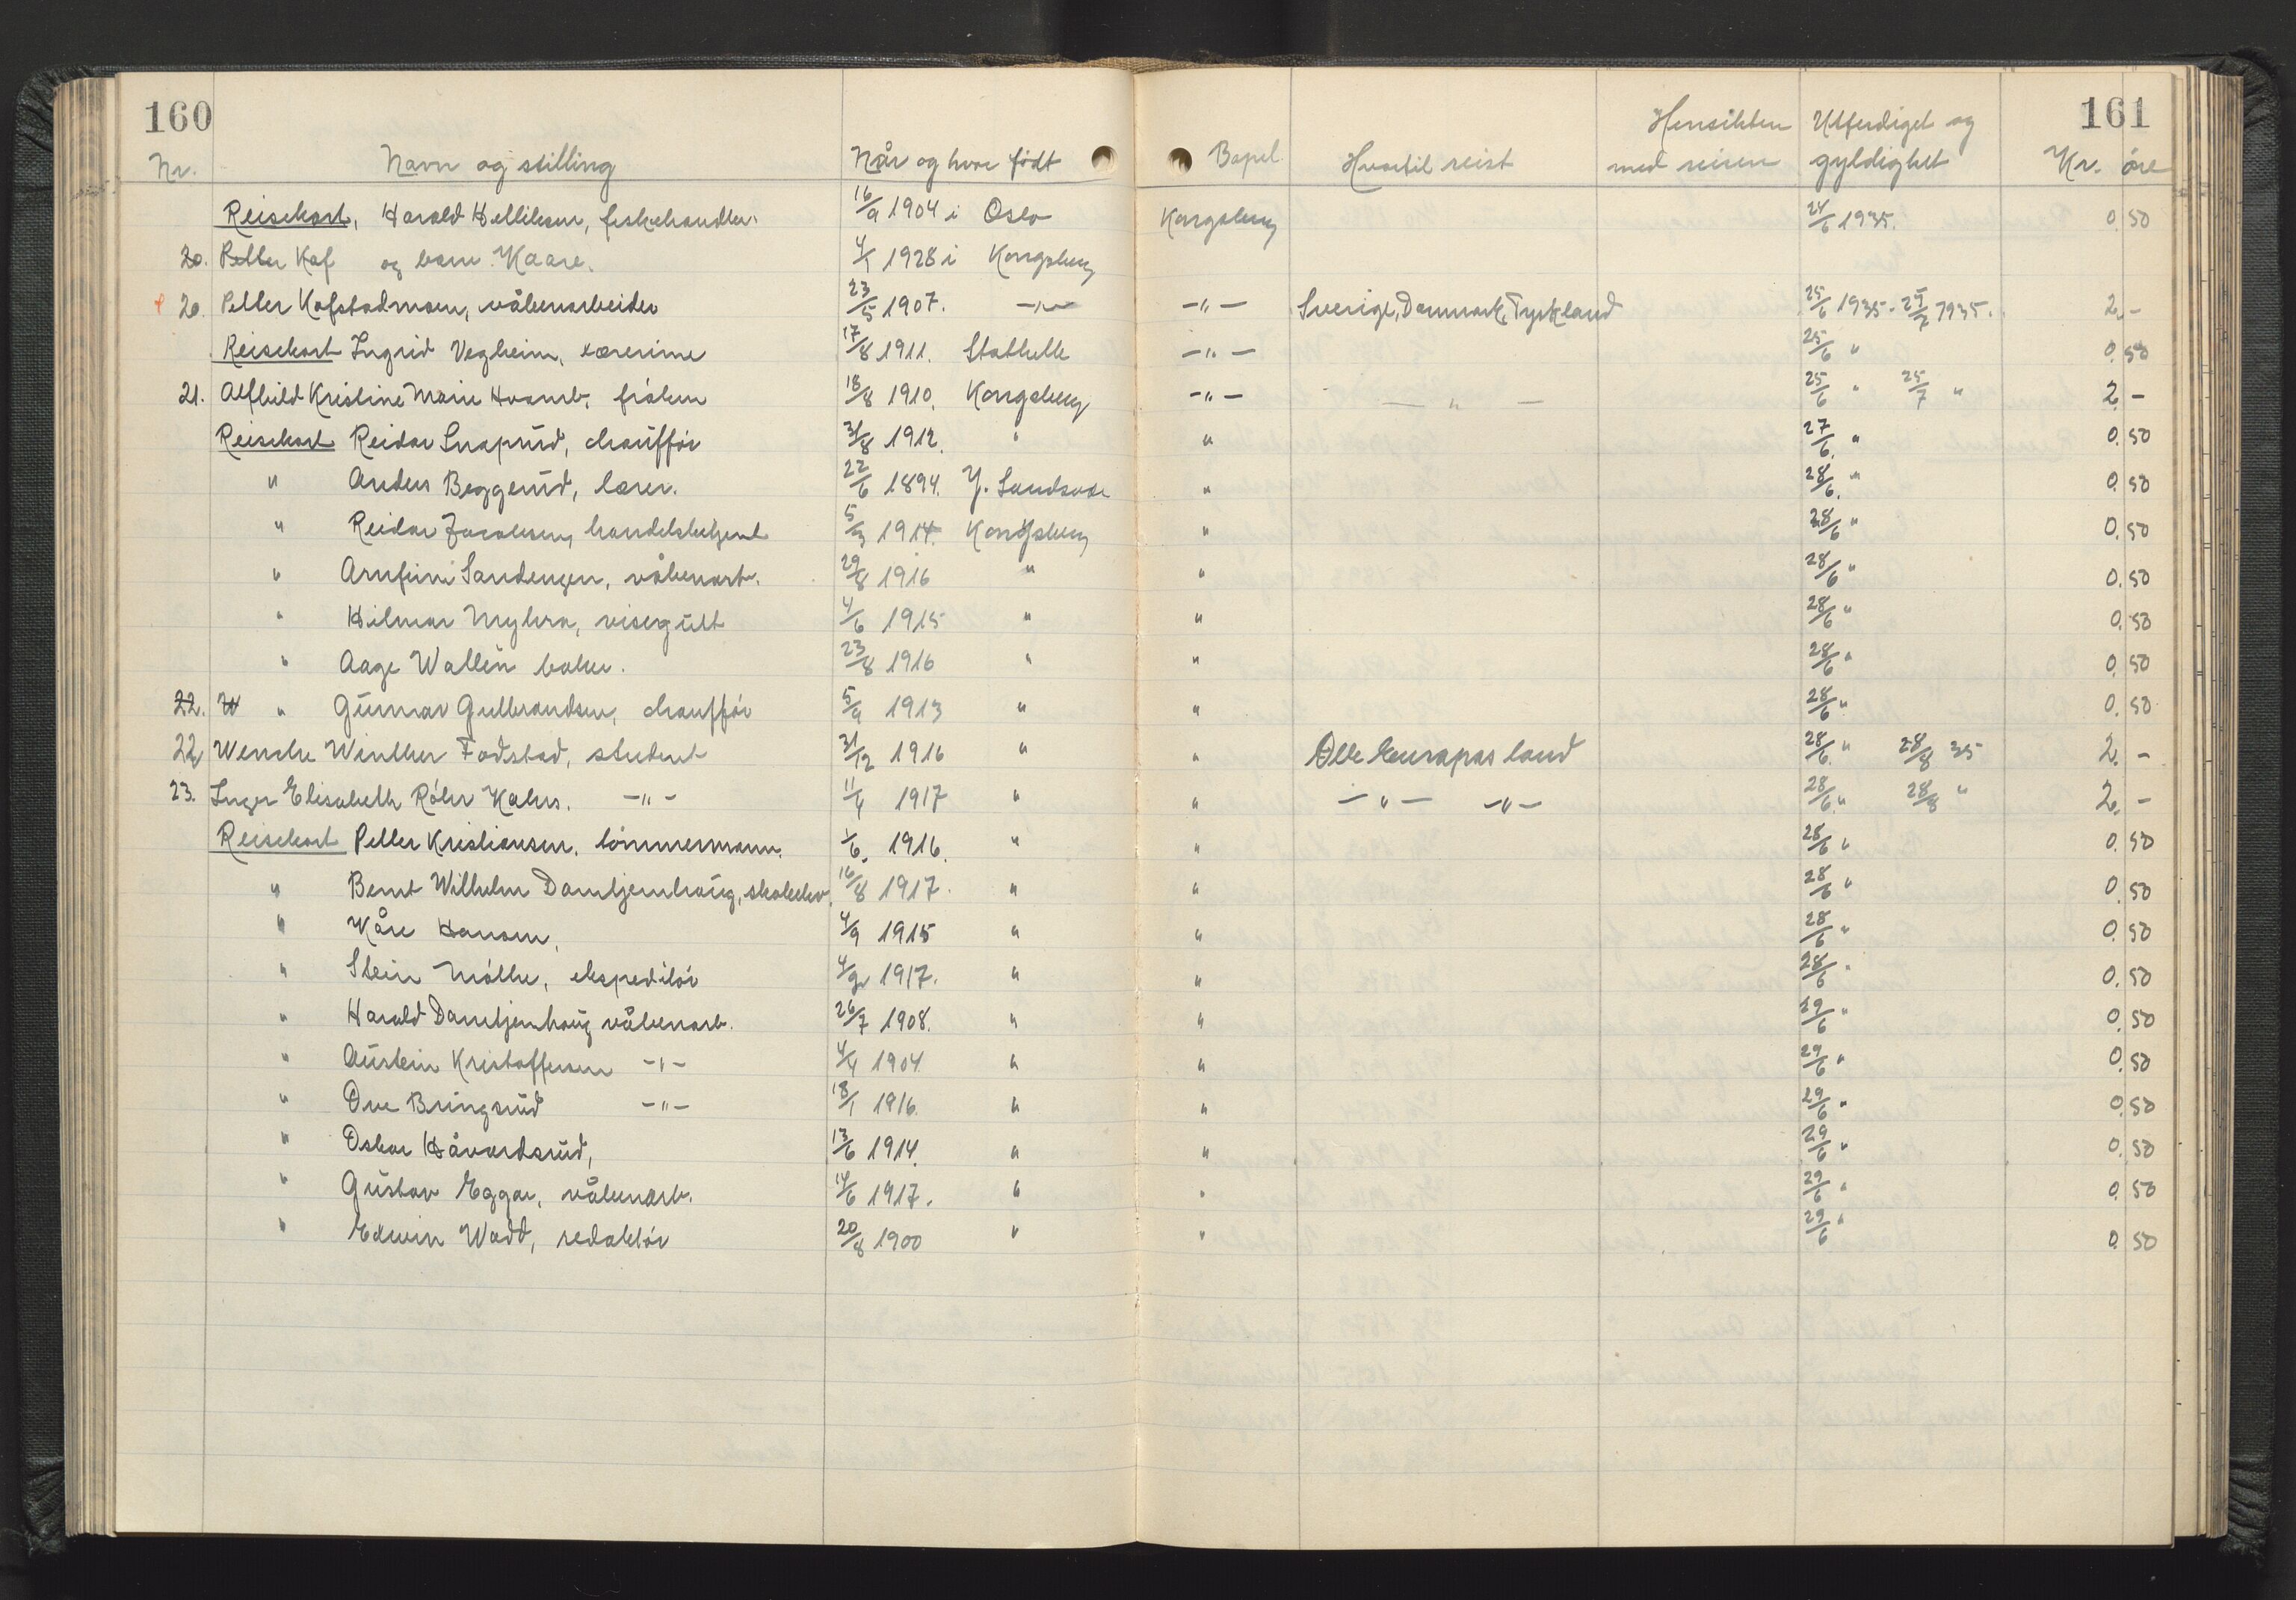 160 161
Nr. Navn og stilling Når og hvor født Bopel Hvortil reist Hensikten med reisen Utferdiget og gyldighet Kr. øre
Reisekort, Harald Helliksen, fiskehandler. 16/9 1904 i Oslo Kongsberg 24/6 1935. 0.50
20. Petter Kof og barn Kaare. 4/1 1928 i Kongsberg
20. Petter Kofstadmoen, våbenarbeider 23/5 1907. -"- -"- Sverige, Danmark, Tyskland 25/6 1935 - 25/7 1935. 2.-
Reisekort Ingrid Vegheim, lærerinne 17/8 1911. Stathelle -"- 25/6 " 0.50
21. Alfhild Kristine Marie Hvamb, frøken 18/8 1910. Kongsberg -"- - " - 25/6 " 25/7 " 2.-
Reisekort Reidar Snaprud, chauffør 31/8 1912. " " 27/6 " 0.50
" Anders Beggerud, lærer. 22/6 1894. Y. Sandsvær " 28/6. " 0.50
" Reidar Jacobsen, handelsbetjent 5/3 1914. Kongsberg " 28/6 " 0.50
" Arnfinn Sandengen, våbenarb. 29/8 1916 " " 28/6 " 0.50
" Hilmar Myhra, visergutt 4/6 1915 " " 28/6 " 0.50
" Aage Wallin baker. 23/8 1916 " " 28/6 " 0.50
22. W " Gunnar Gulbrandsen, chauffør 5/9 1913 " " 28/6 " 0.50
22 Wenche Winther Fodstad, student 31/12 1916 " " Alle Europas land 28/6. " 28/8 35 2.-
23. Inger Elisabeth Røhr Kahrs. -"- 11/4 1917 " " -"- -"- 28/6. " 28/8 " 2.-
Reisekort Petter Kristiansen, tømmermann. 1/6. 1916. " " 28/6 " 0.50
" Bernt Wilhelm Damtjernhaug, skoleelev. 16/8 1917. " " 28/6 " 0.50
" Kåre Hansen, 4/9 1915 " " 28/6 " 0.50
" Stein Møller, ekspeditør 4/2 1917. " " 28/6 " 0.50
" Harald Damtjernhaug våbenarb. 26/7 1908. " " 29/6 " 0.50
" Austein Kristoffersen -"- 4/4 1904 " " 29/6 " 0.50
" Ove Bringsrud -"- 18/1 1916. " " 29/6 " 0.50
" Oskar Håvardsrud, 13/6 1914. " " 29/6 " 0.50
" Gustav Eggar, våbenarb. 14/6 1917. " " 29/6 " 0.50
" Edwin Wadd, redaktør 20/8 1900 " " 29/6 " 0.50